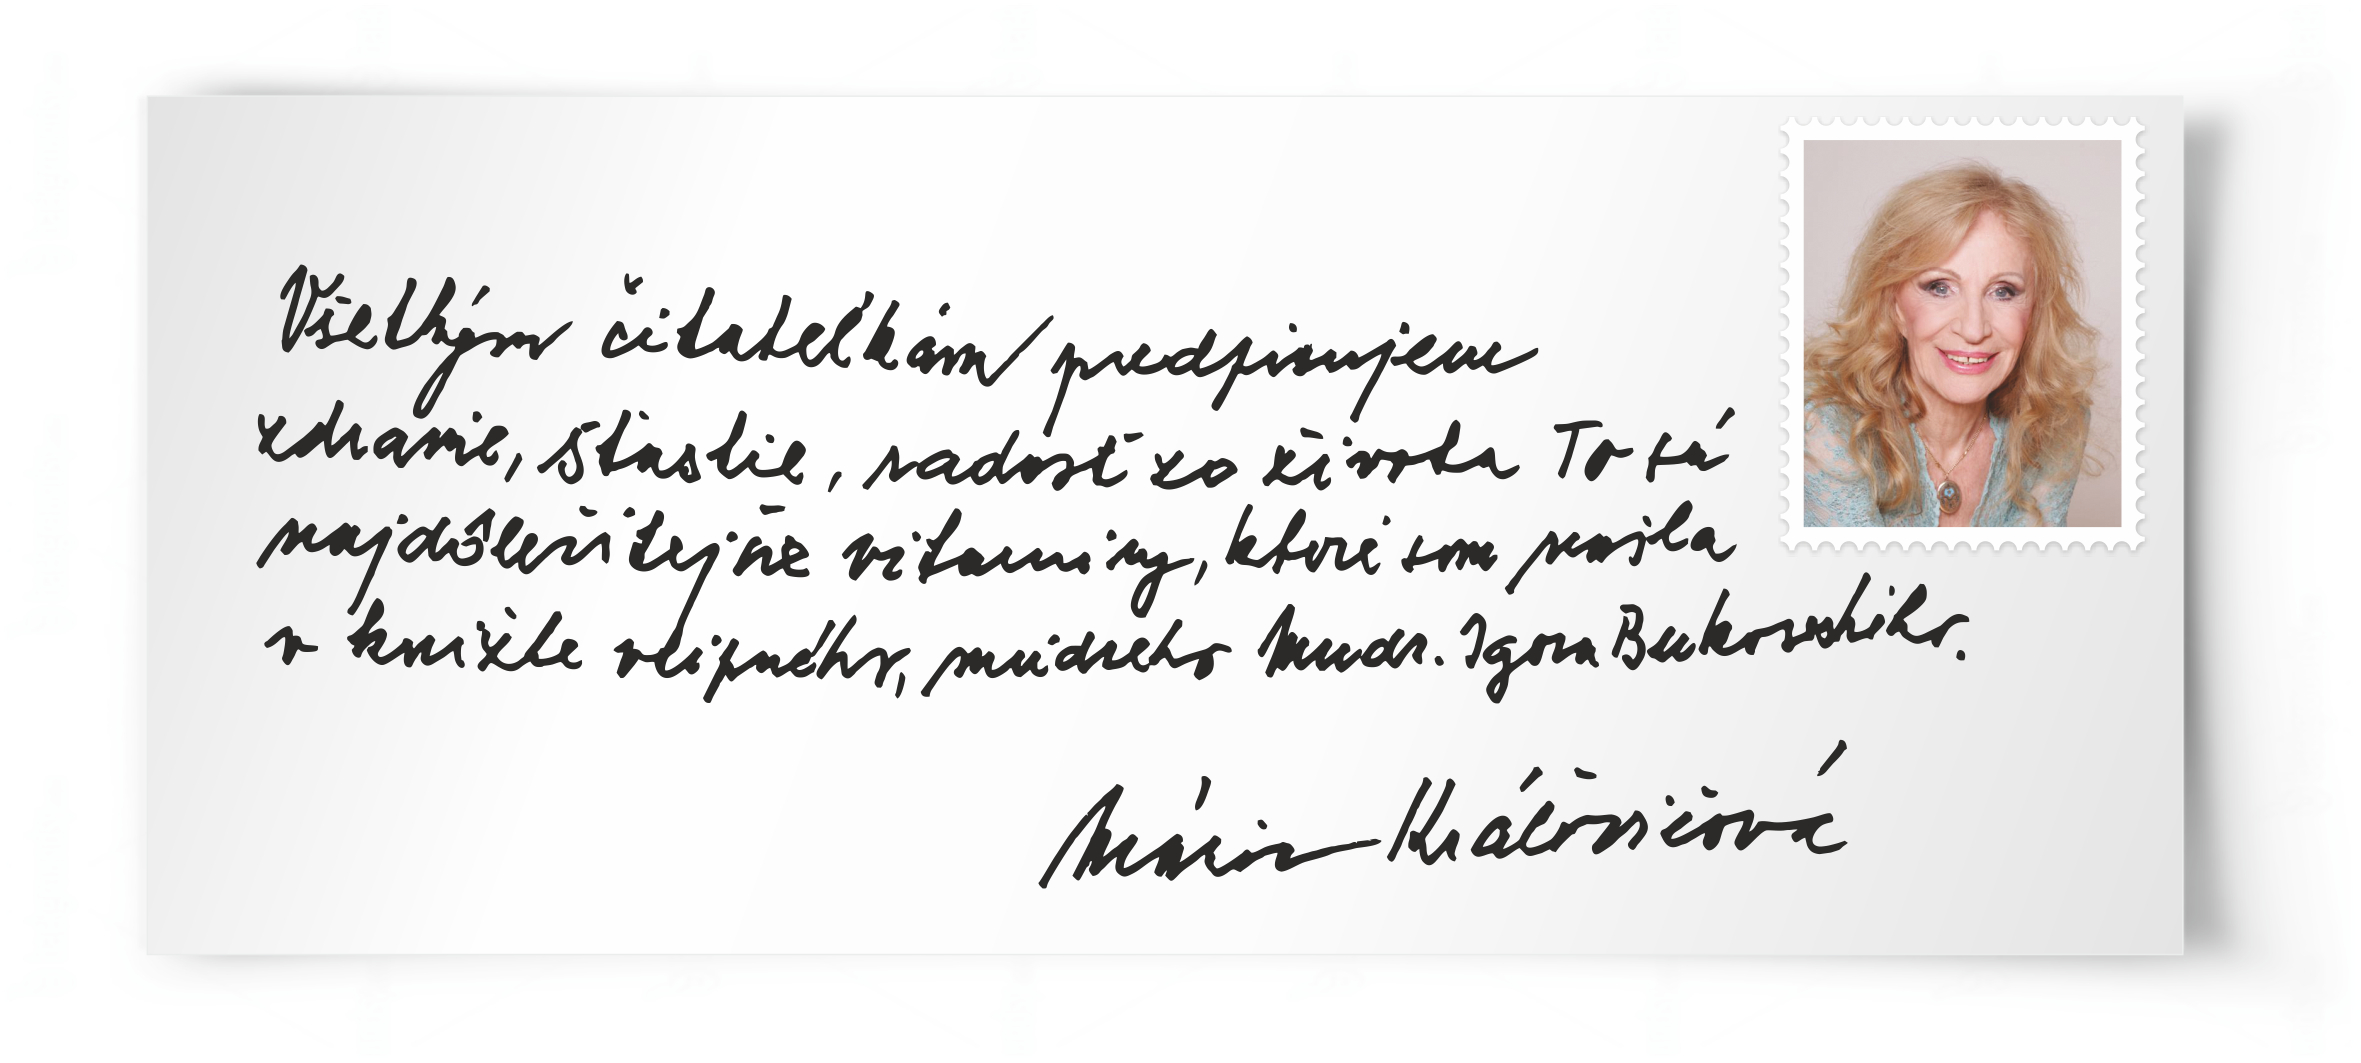 Všetkým čitateľkám predpisujem
zdravie, šťastie, radosť zo života To sú
najdôležitejšie vitamíny, ktoré som našla
v knižke vtipného, múdreho Mudr. Igora Bukovského.
Mária Kráľovičová